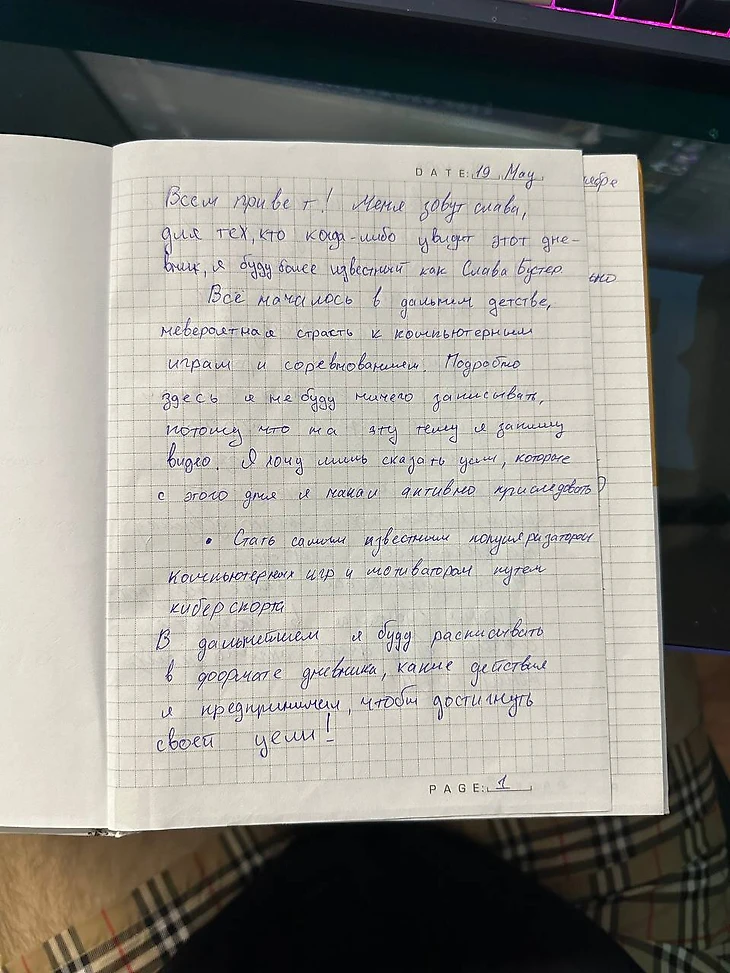 DATE: 19 May
Всем привет! Меня зовут слава,
для тех, кто когда-либо увидит этот дне-
вник, я буду более известный как Слава Бустер.
Всё началось в дальнем детстве,
невероятная страсть к компьютерным
играм и соревнованием. Подробно
здесь я не буду ничего записывать,
потому что на эту тему я запишу
видео. Я хочу лишь сказать цели, которые
с этого дня я начал активно приследовать)
• Стать самым известным популяризатором
компьютерных игр и мотиватором путем
киберспорта
В дальнейшем я буду расписывать
в формате дневника, какие действия
я предпринимал, чтобы достигнуть
своей цели!
PAGE: 1